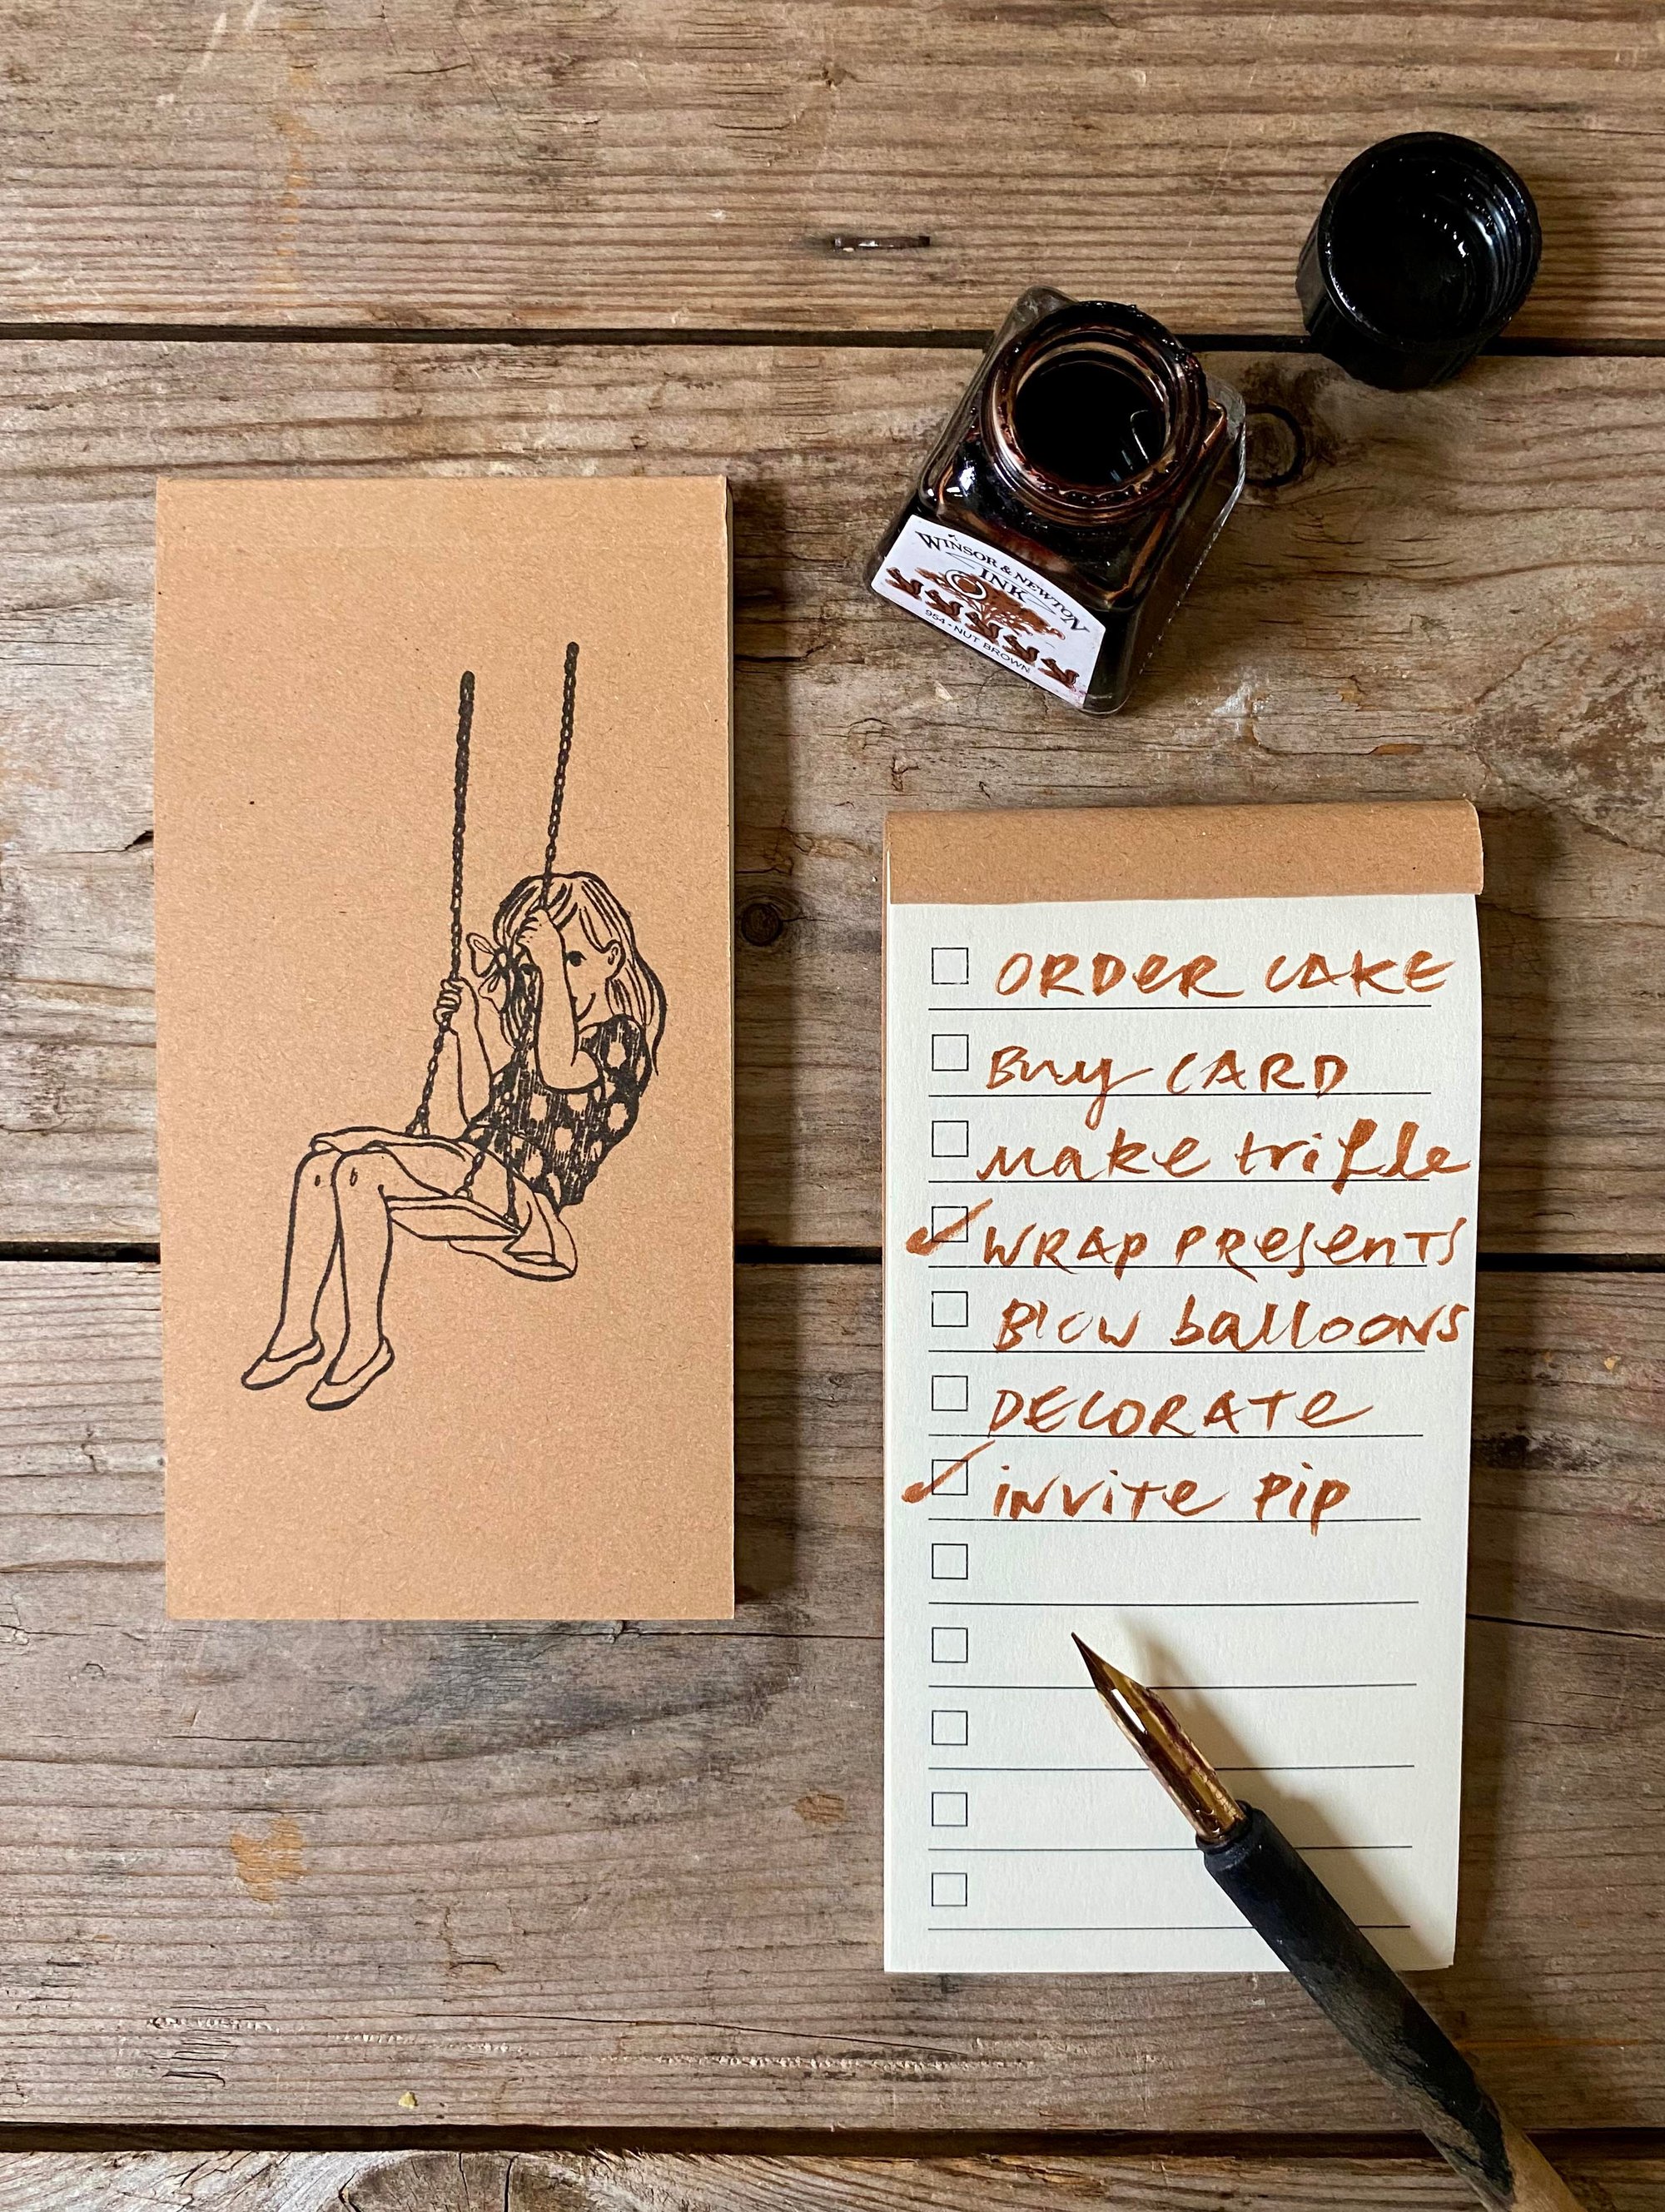 WINSOR & NEWTON
INK
954 - NUT BROWN
ORDER CAKE
Buy CARD
make trifle
WRAP PRESENTS
Blow balloons
DECORATE
invite pip